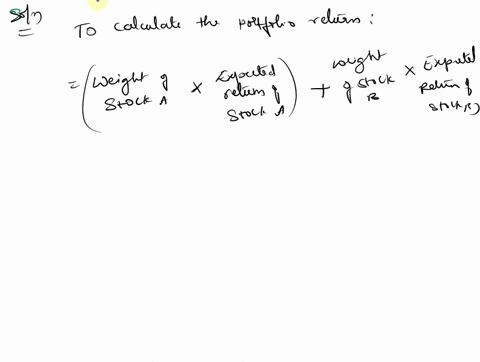 Sol'n To calculate the portfolio return:
= (Weight of Stock A × Expected return of Stock A) + weight of stock B × Expected Return of Stock B)